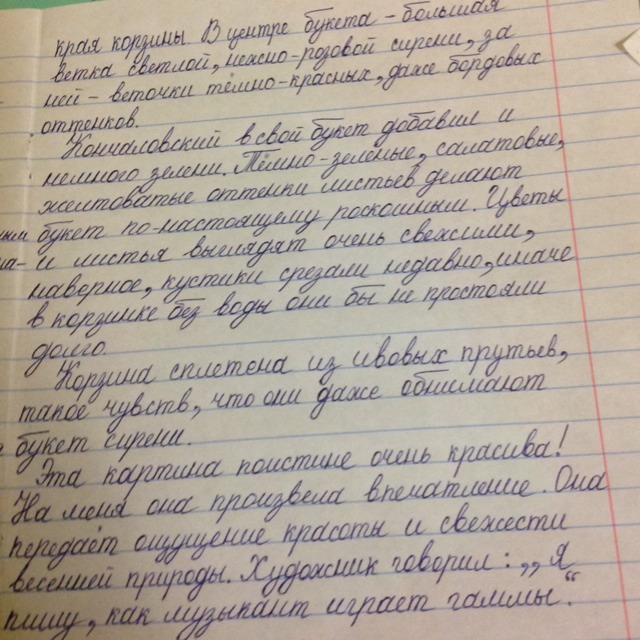 края корзины В центре букета - большая
ветка светлой, нежно-розовой сирени, за
ней - веточки тёмно-красных, даже бордовых
оттенков.
Кончаловский в свой букет добавил и
немного зелени. Тёмно-зелёные, салатовые,
желтоватые оттенки листьев делают
букет по-настоящему роскошным. Цветы
и листья выглядят очень свежими,
наверное, кустики срезали недавно, иначе
в корзинке без воды они бы не простояли
долго.
Корзина сплетена из ивовых прутьев,
такое чувств, что они даже обнимают
букет сирени.
Эта картина поистине очень красива!
На меня она произвела впечатление. Она
передаёт ощущение красоты и свежести
весенней природы. Художник говорил: „Я
пишу, как музыкант играет гаммы.“